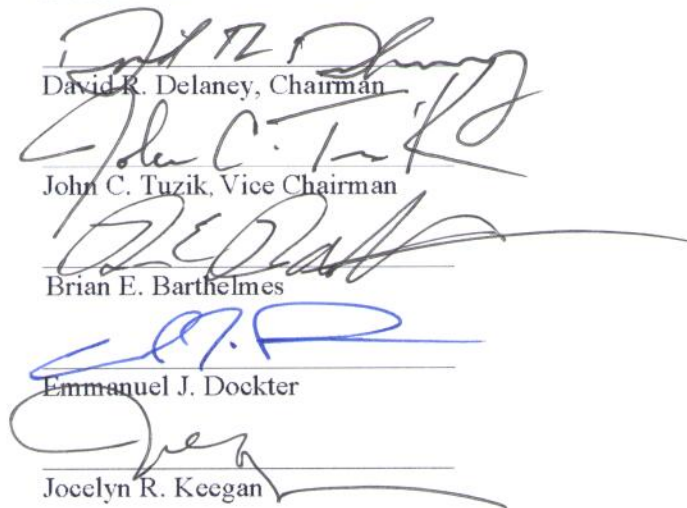 David R. Delaney, Chairman
John C. Tuzik
John C. Tuzik, Vice Chairman
Brian E. Barthelmes
Emmanuel J. Dockter
Jocelyn R. Keegan